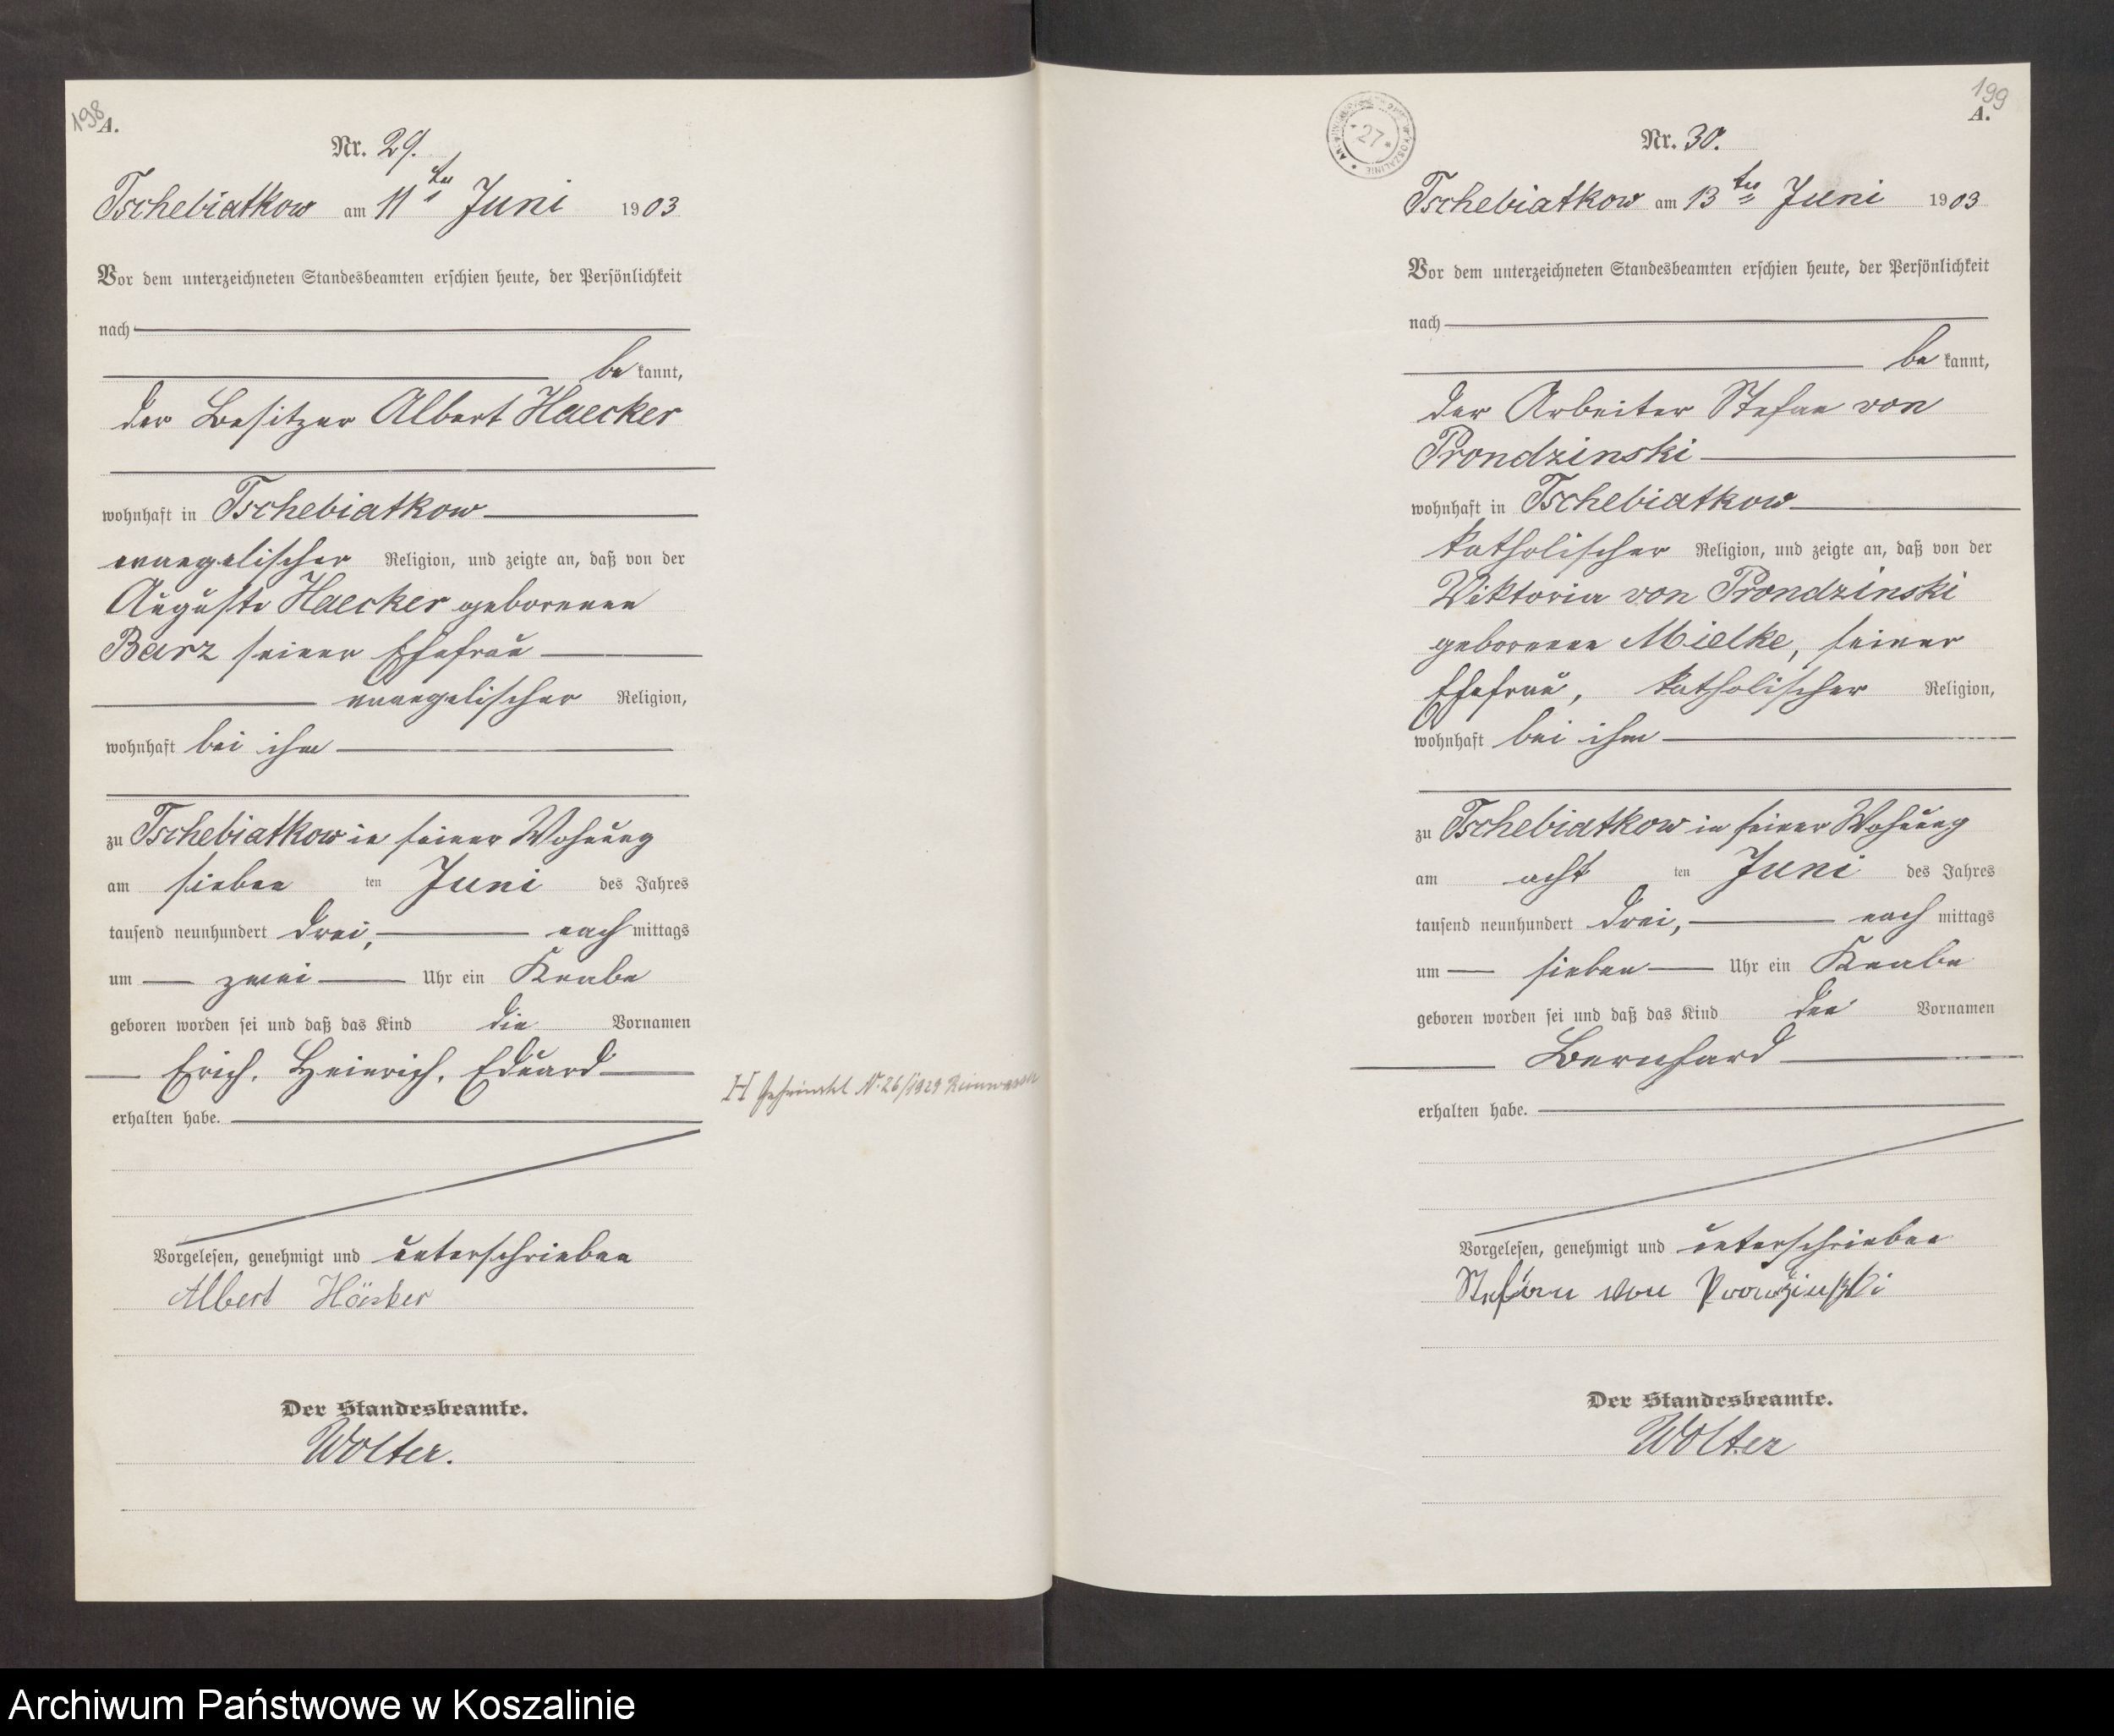 198
A.
Nr. 29.
Tschebiatkow am 11ten Juni 1903
Vor dem unterzeichneten Standesbeamten erschien heute, der Persönlichkeit
nach
be kannt,
der Besitzer Albert Haecker
wohnhaft in Tschebiatkow
evangelischer Religion, und zeigte an, daß von der
Auguste Haecker geborenen
Barz seiner Ehefrau
evangelischer Religion,
wohnhaft bei ihm
zu Tschebiatkow in seiner Wohnung
am sieben ten Juni des Jahres
tausend neunhundert drei, nach mittags
um zwei Uhr ein Knabe
geboren worden sei und daß das Kind die Vornamen
Erich, Heinrich, Eduard
H N. 26/1929
erhalten habe.
Vorgelesen, genehmigt und unterschrieben
Albert Häcker
Der Standesbeamte.
Wolter.
199
A.
27
Nr. 30.
Tschebiatkow am 13ten Juni 1903
Vor dem unterzeichneten Standesbeamten erschien heute, der Persönlichkeit
nach
be kannt,
der Arbeiter Stefan von
Prondzinski
wohnhaft in Tschebiatkow
katholischer Religion, und zeigte an, daß von der
Viktoria von Prondzinski
geborenen Mielke, seiner
Ehefrau, katholischer Religion,
wohnhaft bei ihm
zu Tschebiatkow in seiner Wohnung
am acht ten Juni des Jahres
tausend neunhundert drei, nach mittags
um sieben Uhr ein Knabe
geboren worden sei und daß das Kind den Vornamen
Bernhard
erhalten habe.
Vorgelesen, genehmigt und unterschrieben
Stefan von
Der Standesbeamte.
Wolter
Archiwum Państwowe w Koszalinie